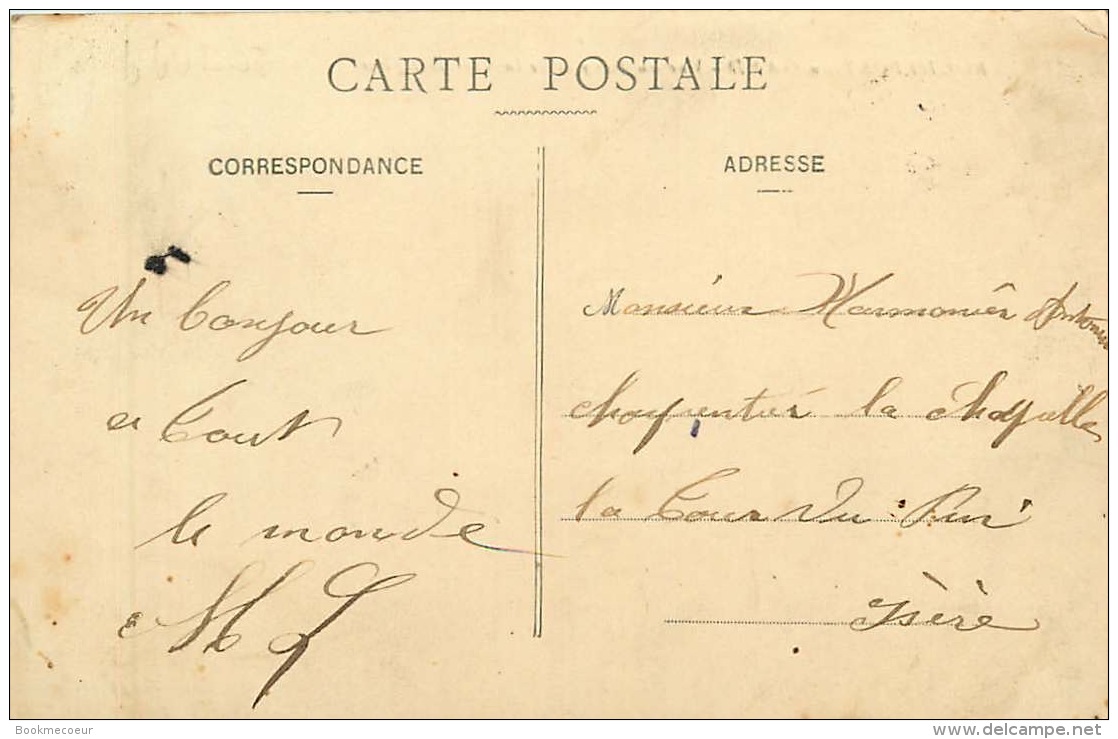 CARTE POSTALE
CORRESPONDANCE
Un bonjour
a tout
le monde
M J
ADRESSE
Monsieur Marmonier Antoine
charpentier la chapelle
la Tour du Pin
Isère
Bookmecoeur
www.delcampe.net